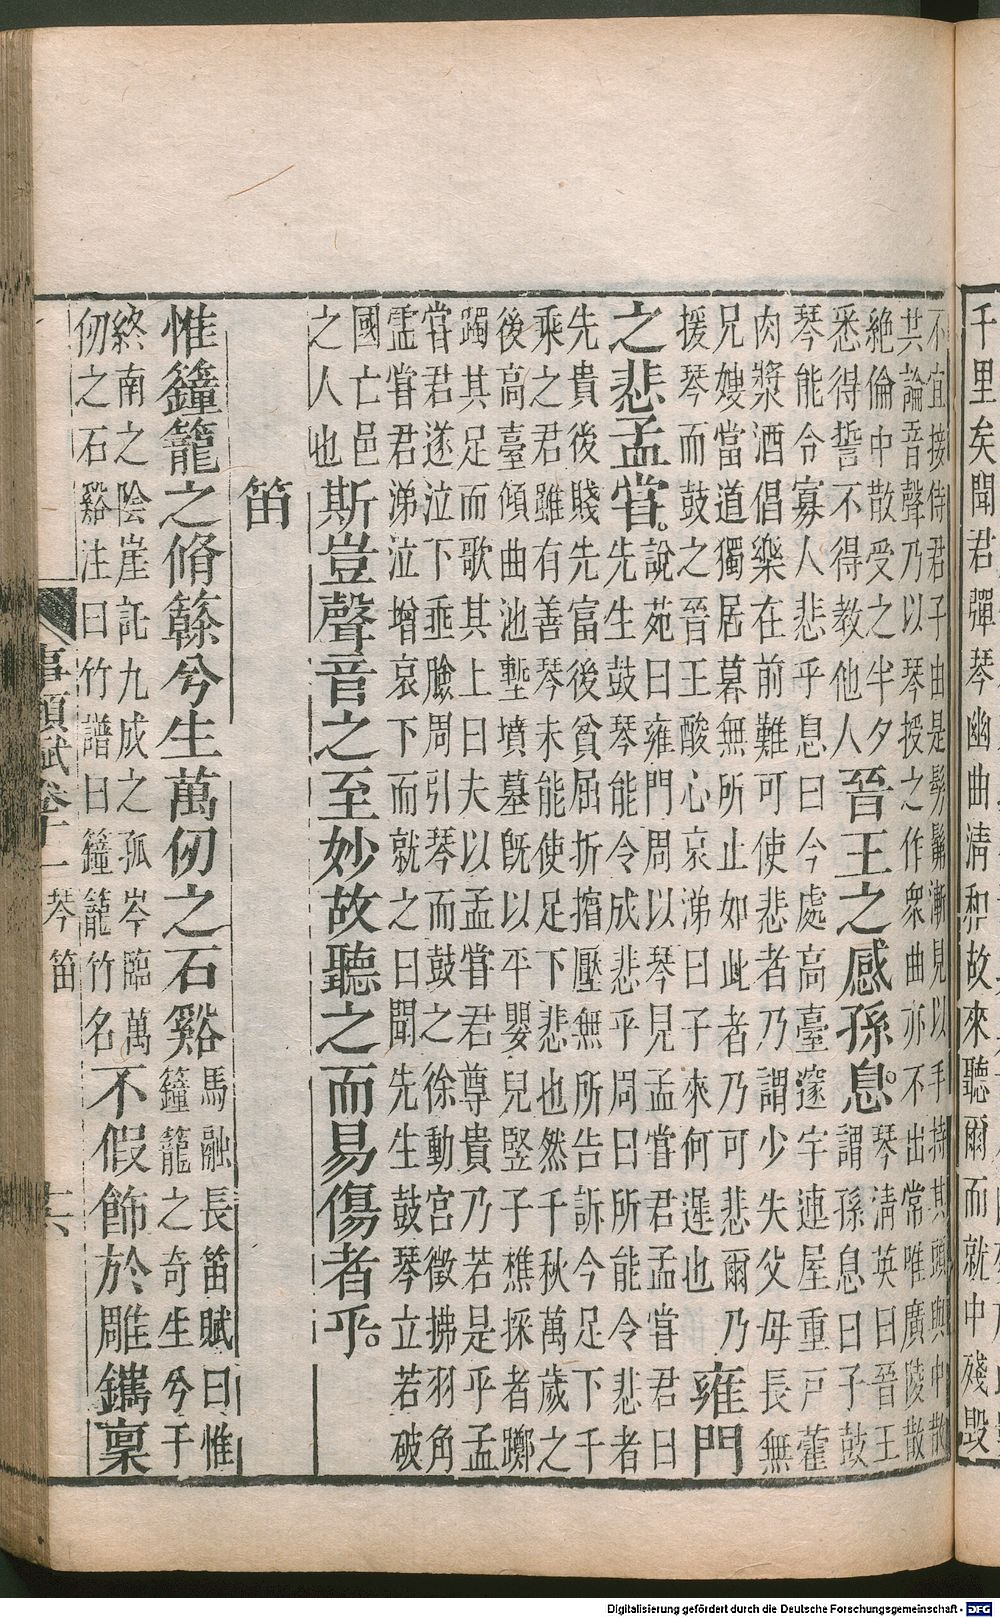 千里矣聞君彈琴幽曲清和故來聽爾而就中殘毀
不宜接侍君子由是髣髴漸見以手持其頭與中散
共論音聲乃以琴授之作衆曲亦不出常唯廣陵散
絶倫中散受之半夕
悉得誓不得教他人
晉王之感孫息。
琴清英曰晉王
謂孫息曰子鼓
琴能令寡人悲乎息曰今處高臺邃宇連屋重戸藿
肉漿酒倡樂在前難可使悲者乃謂少失父母長無
兄嫂當道獨居暮無所止如此者乃可悲爾乃
援琴而鼓之晉王酸心哀涕曰子來何遲也
雍門
之悲孟嘗。
說苑曰雍門周以琴見孟嘗君孟嘗君曰
先生鼓琴能令成悲乎周曰所能令悲者
先貴後賤先富後貧屈折擯壓無所告訴今足下千
乘之君雖有善琴未能使足下悲也然千秋萬歲之
後高臺傾曲池塹墳墓旣以平嬰兒竪子樵採者躑
躅其足而歌其上曰夫以孟嘗君尊貴乃若是乎孟
嘗君遂泣下垂臉周引琴而鼓之徐動宮徵拂羽角
孟嘗君涕泣增哀下而就之曰聞先生鼓琴立若破
國亡邑
之人也
斯豈聲音之至妙故聽之而易傷者乎。
笛
惟籦籠之脩簳兮生萬仞之石谿
馬融長笛賦曰惟
籦籠之奇生兮于
終南之陰崖託九成之孤岑臨萬
仞之石谿注曰竹譜曰籦籠竹名
不假飾於雕鐫稟
事類賦卷十一
琴笛
十六
Digitalisierung gefördert durch die Deutsche Forschungsgemeinschaft - DFG